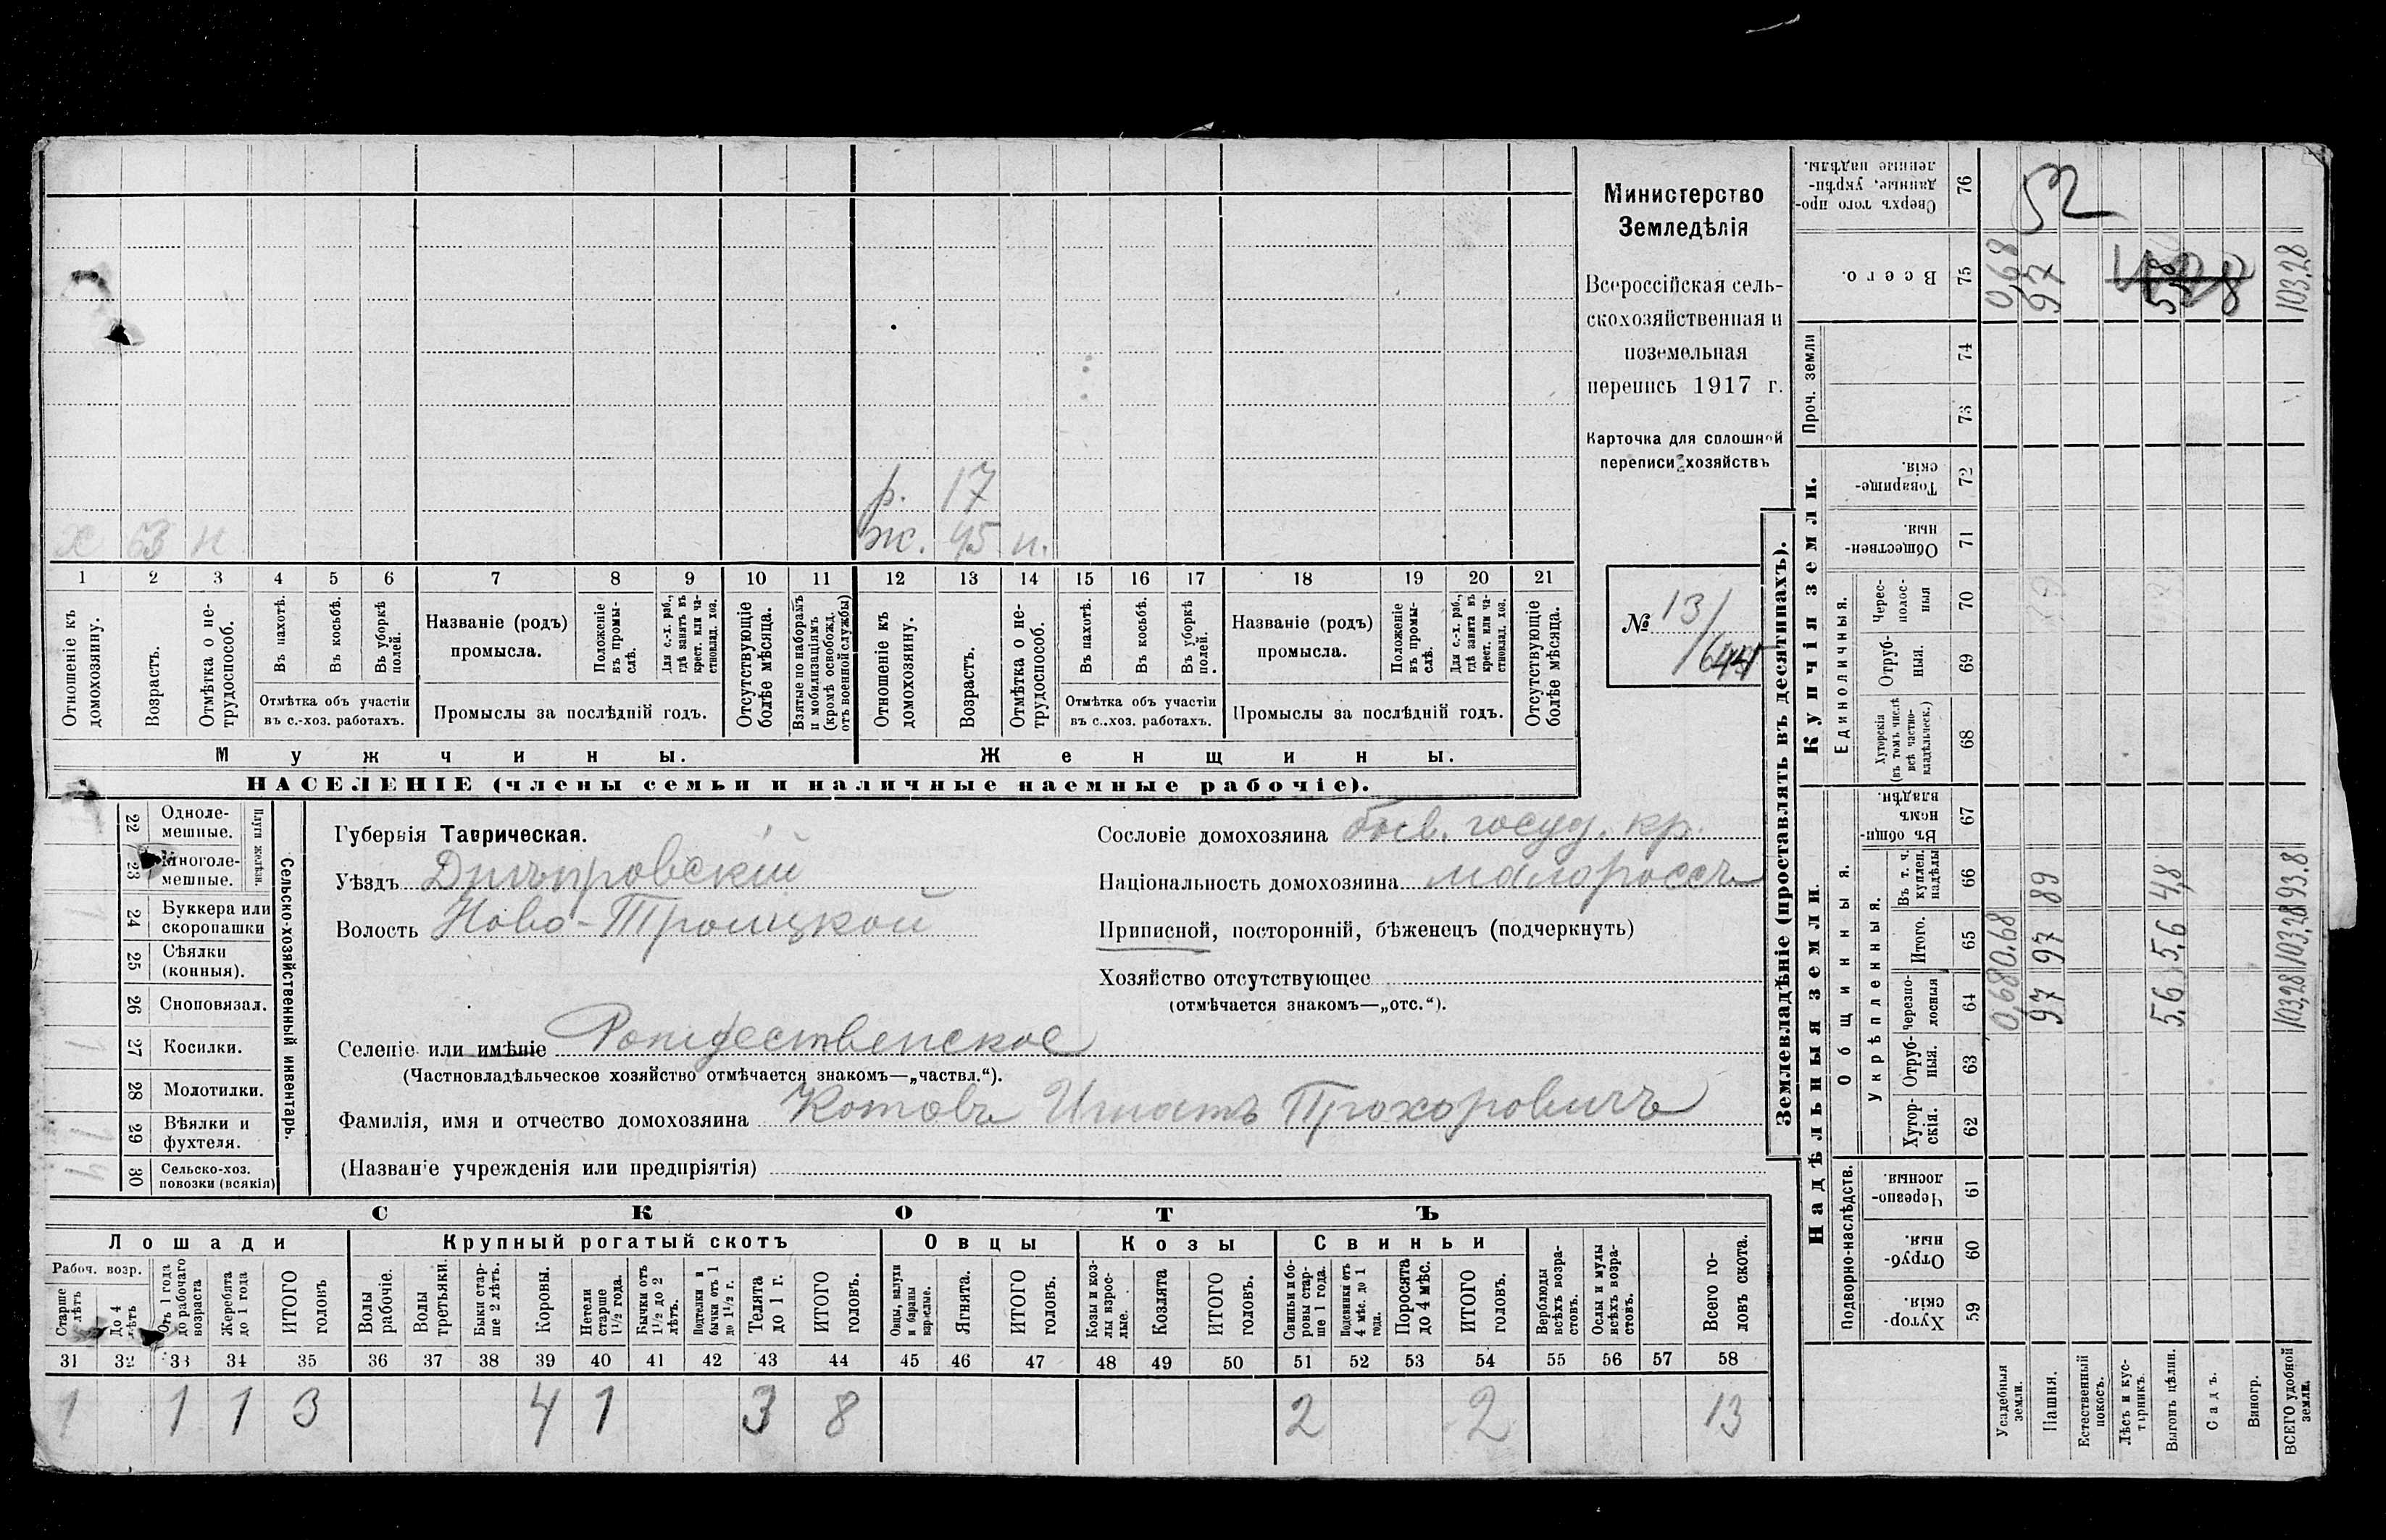 х 63 н
р. 17
ж. 45 н.
1 2 3 4 5 6 7 8 9 10 11 12 13 14 15 16 17 18 19 20 21
Отношеніе къ домохозяину.
Возрастъ.
Отмѣтка о не-трудоспособ.
Въ пахотѣ.
Въ косьбѣ.
Въ уборкѣ полей.
Отмѣтка объ участіи въ с.-хоз. работахъ.
Названіе (родъ) промысла.
Положеніе въ промы-слѣ.
Для с.-х. раб., гдѣ занятъ въ крест. или ча-стновлад. хоз.
Промыслы за послѣдній годъ.
Отсутствующіе болѣе мѣсяца.
Взятые по наборамъ и мобилизаціямъ (кромѣ освобожд. отъ военной службы)
Отношеніе къ домохозяину.
Возрастъ.
Отмѣтка о не-трудоспособ.
Въ пахотѣ.
Въ косьбѣ.
Въ уборкѣ полей.
Отмѣтка объ участіи въ с..хоз. работахъ.
Названіе (родъ) промысла.
Положеніе въ промы-слѣ.
Для с.-х. раб., гдѣ занята въ крест. или ча-стновлад. хоз.
Промыслы за послѣдній годъ.
Отсутствующіе болѣе мѣсяца.
Мужчины. Женщины.
НАСЕЛЕНІЕ (члены семьи и наличные наемные рабочіе).
Министерство
Земледѣлія
Всероссійская сель-
скохозяйственная и
поземельная
перепись 1917 г.
Карточка для сплошной
переписи хозяйствъ
№ 13/644
Сельско-хозяйственный инвентарь.
Плуги желѣзн.
22 Одноле-мешные.
23 Многоле-мешные.
24 Буккера или скоропашки 1
25 Сѣялки (конныя).
26 Сноповязал.
27 Косилки. 1
28 Молотилки.
29 Вѣялки и фухтеля. 1
30 Сельско-хоз. повозки (всякія) 4
Губернія Таврическая.
Уѣздъ Днѣпровскій
Волость Ново-Троицкой
Сословіе домохозяина бывш. госуд. кр.
Національность домохозяина малороссъ
Приписной, посторонній, бѣженецъ (подчеркнуть)
Хозяйство отсутствующее
(отмѣчается знакомъ—„отс.“).
Селеніе или имѣніе Рождественское
(Частновладѣльческое хозяйство отмѣчается знакомъ—„частвл.“).
Фамилія, имя и отчество домохозяина Котовъ Игнатъ Прохоровичъ
(Названіе учрежденія или предпріятія)
СКОТЪ
Лошади Крупный рогатый скотъ Овцы Козы Свиньи
Рабоч. возр.
Старше 4 лѣтъ
До 4 лѣтъ
Отъ 1 года до рабочаго возраста
Жеребята до 1 года
ИТОГО головъ
Волы рабочіе.
Волы третьяки.
Быки стар-ше 2 лѣтъ.
Коровы.
Нетели старше 1½ года.
Бычки отъ 1½ до 2 лѣтъ.
Подтелки и бычки отъ 1 до 1½ г.
Телята до 1 г.
ИТОГО головъ.
Овцы, валухи и бараны взрослые.
Ягнята.
ИТОГО головъ.
Козы и коз-лы взрос-лые.
Козлята
ИТОГО головъ.
Свиньи и бо-ровы стар-ше 1 года.
Подсвинки отъ 4 мѣс. до 1 года.
Поросята до 4 мѣс.
ИТОГО головъ.
Верблюды всѣхъ возра-стовъ.
Ослы и мулы всѣхъ возра-стовъ.
Всего го-ловъ скота.
31 32 33 34 35 36 37 38 39 40 41 42 43 44 45 46 47 48 49 50 51 52 53 54 55 56 57 58
1 1 1 3 4 1 3 8 2 2 13
Землевладѣніе (проставлять въ десятинахъ).
Надѣльныя земли. Купчія земли.
Подворно-наслѣдств.
Общинныя.
Укрѣпленныя.
Единоличныя.
Проч. земли
59 Хутор-скія.
60 Отруб-ныя.
61 Черезпо-лосныя
62 Хутор-скія.
63 Отруб-ныя.
64 черезпо-лосныя
65 Итого.
66 Въ т. ч. куплен. надѣлы
67 Въ общи-номъ владѣн.
68 Хуторскія (въ томъ числѣ всѣ частно-владѣльческ.)
69 Отруб-ныя.
70 Черес-полос-ныя
71 Обществен-ныя.
72 Товарище-скія.
73
74
75 Всего.
76 Сверхъ того про-данные, укрѣп-ленные надѣлы.
Усадебныя земли. 0,68 0.68 0,68
Пашня. 97 97 89 97 52
Естественный покосъ.
Лѣсъ и кус-тарникъ.
Выгонъ цѣлин. 5.6 5.6 4,8
Садъ.
Виногр.
ВСЕГО удобной земли. 103,28 103,28 93.8 103.28